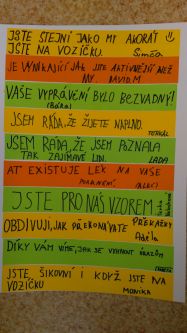 JSTE STEJNÍ JAKO MY AKORÁT
JSTE NA VOZÍČKU. Simča
JE VYNIKAJÍCÍ JAK JSTE AKTIVNĚJŠÍ NEŽ
MY. DAVID.M
VAŠE VYPRÁVĚNÍ BYLO BEZVADNÝ!
(Bára)
JSEM RÁDA, ŽE ŽIJETE NAPLNO.
JSEM RÁDA, ŽE JSEM POZNALA
TAK ZAJÍMAVÉ LIDI. LADA
AŤ EXISTUJE LÉK NA VAŠE
PORANĚNÍ (ALEX)
JSTE PRO NÁS VZOREM
OBDIVUJI, JAK PŘEKONÁVÁTE PŘEKÁŽKY
Adéla
DÍKY VÁM VÍME, JAK SE VYHNOUT ÚRAZŮM
JSTE ŠIKOVNÍ I KDYŽ JSTE NA
VOZÍČKU MONIKA